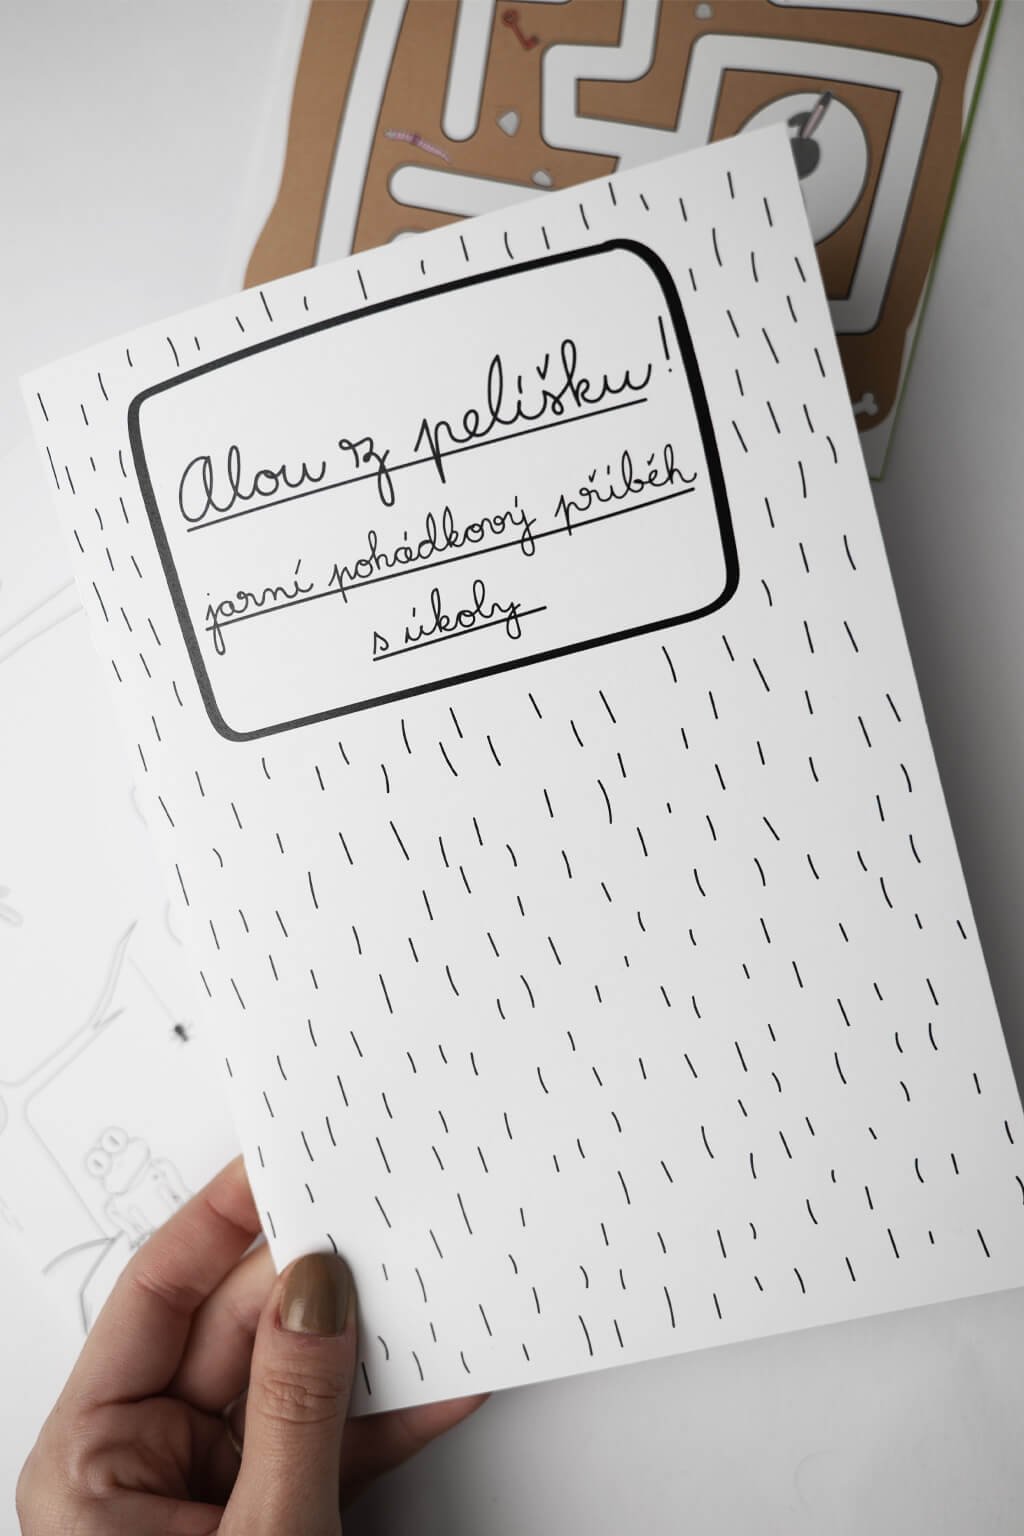 Alou z pelíšku!
jarní pohádkový příběh
s úkoly